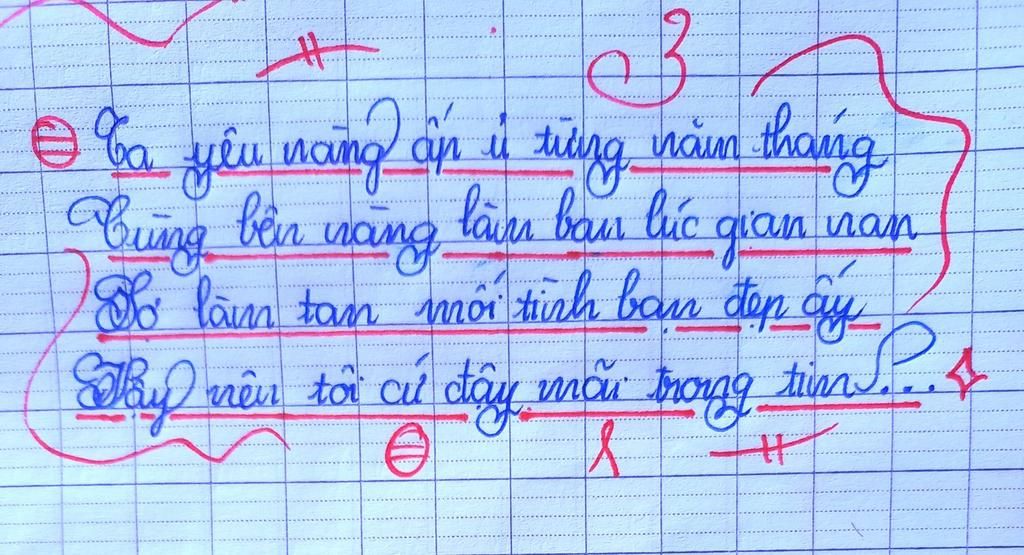 3
Ta yêu nàng ấp ủ từng năm tháng
Cùng bên nàng làm bạn lúc gian nan
Sợ làm tan mối tình bạn đẹp ấy
Hãy nên tôi cứ đậy mãi trong tim...